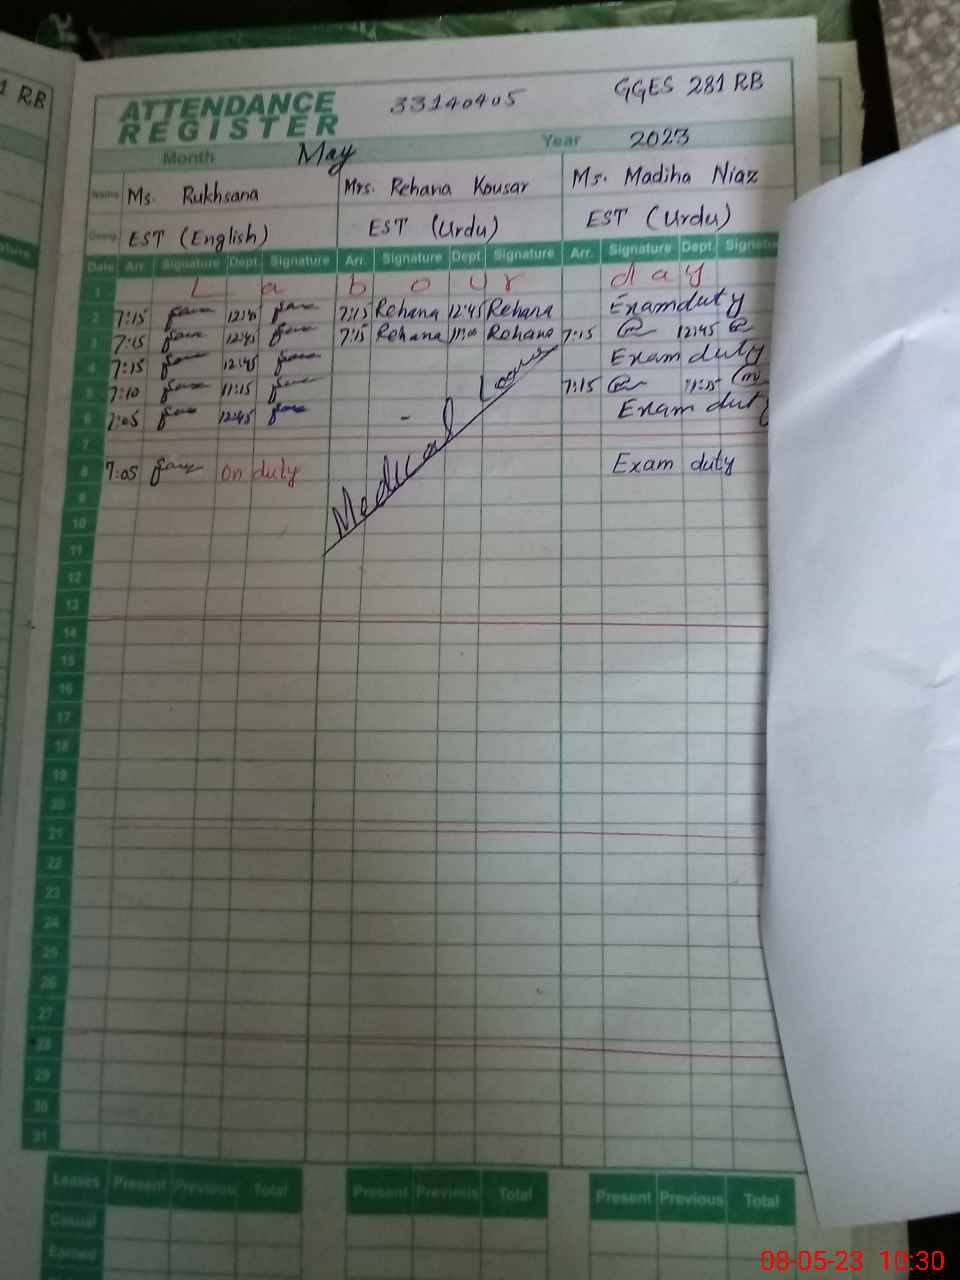 1 RB
ATTENDANCE
REGISTER
33140405
GGES 281 RB
Month May Year 2023
Name Ms. Rukhsana Mrs. Rehana Kousar Ms. Madiha Niaz
EST (English) EST (Urdu) EST (Urdu)
Date Arr. Signature Dept. Signature Arr. Signature Dept. Signature Arr. Signature Dept. Signatu
1 L a b o u r d a y
2 7:15 12:45 7:15 Rehana 12:45 Rehana Exam duty
3 7:15 12:45 7:15 Rehana 11:00 Rehana 7:15 12:45
4 7:15 12:45 Exam duty
5 7:10 11:15 7:15 11:15
6 7:05 12:45 - Exam duty
Medical Leave
7
8 7:05 on duty Exam duty
9
10
11
12
13
14
15
16
17
18
19
20
21
22
23
24
25
26
27
28
29
30
31
Leaves Present Previous Total Present Previous Total Present Previous Total
Casual
Earned
08-05-23 10:30